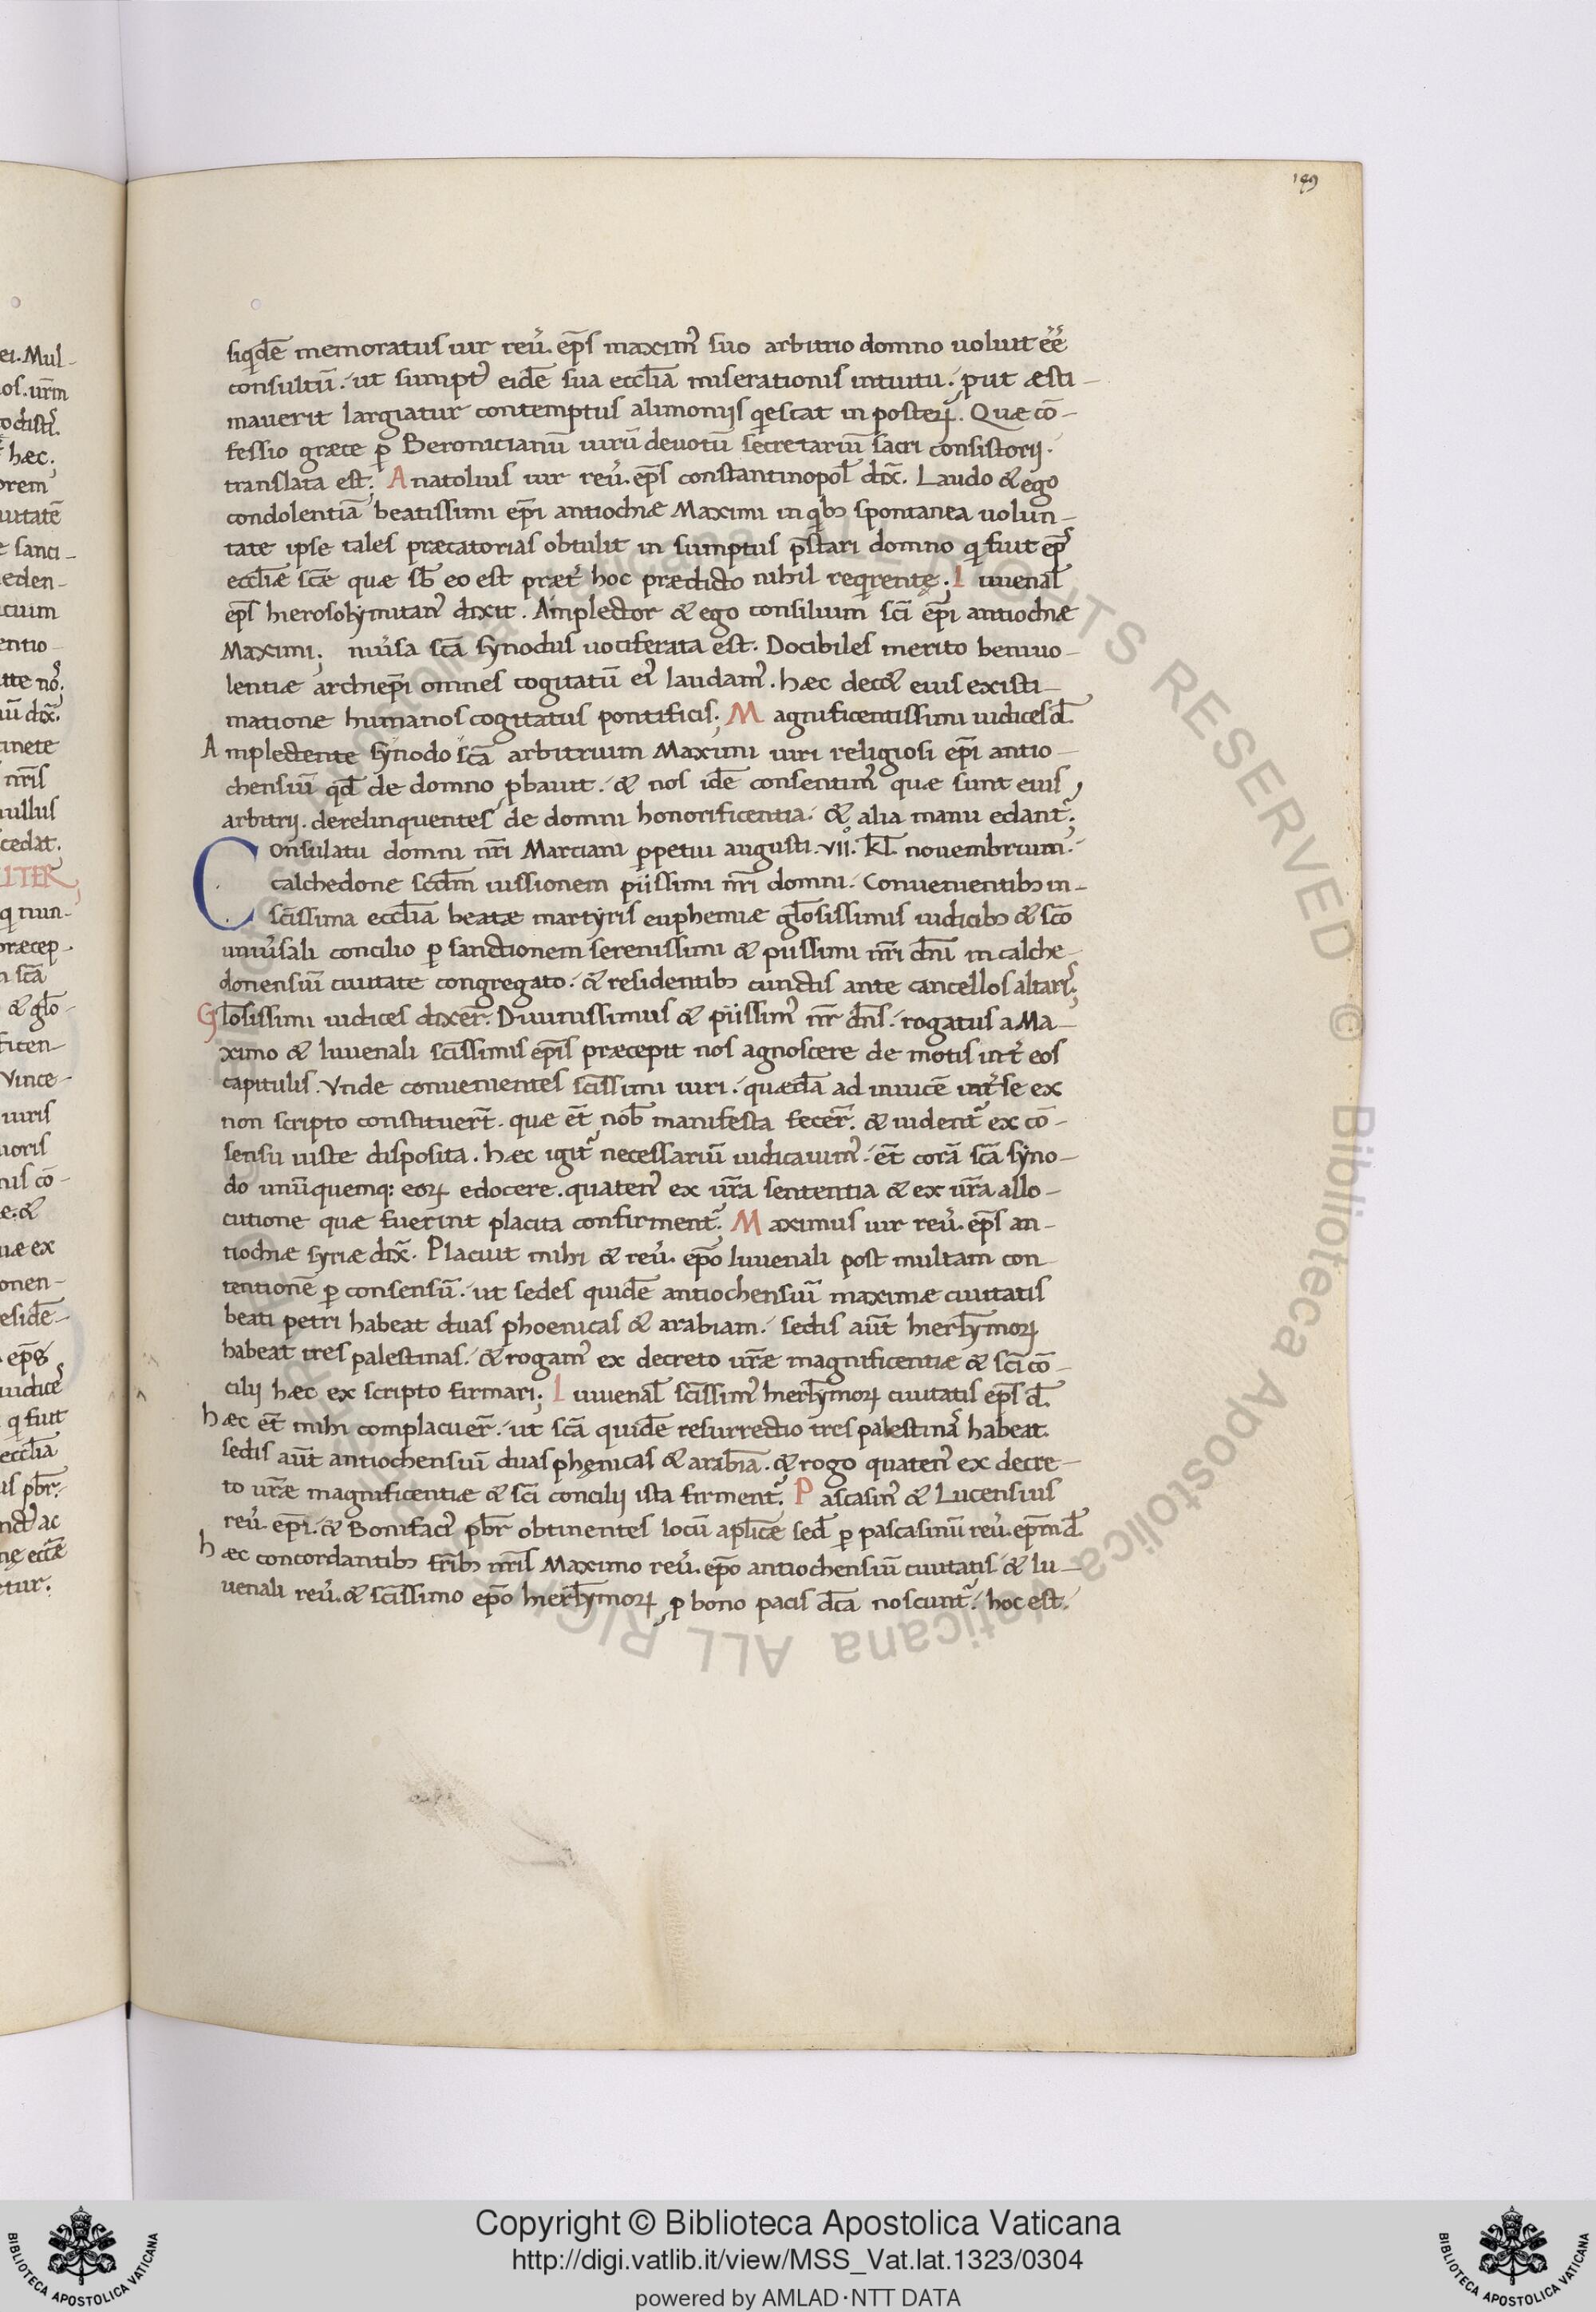 199
siq̇dē memoratus uir reu̓. ep̄s maxim̓ suo arbitrio domno uoluit ēē
consultū. ut sumpt̓ eidē sua eccl̄ia miserationis intuitu. ꝓut æsti-
mauerit largiatur contemptus alimonijs q̇escat in posteꝝ. Quæ cō-
fessio græce ꝑ Beronicianū uirū deuotū secretariū sacri consistorij.
translata est; Anatolius uir reu̓. ep̄s constantinopol̄ dix̄. Laudo & ego
condolentiā beatissimi ep̄i antiochiæ Maximi in q̇bꝫ spontanea uolun-
tate ipse tales præcatorias obtulit in sumptus p̄stari domno q̇ fuit ep̄s
eccl̄iæ sc̄æ quæ sb̄ eo est præt̓ hoc prædicto nihil req̇rente; Iuuenal̄
ep̄s hierosolymitan̓ dixit. Amplector & ego consilium sc̄i ep̄i antiochiæ
Maximi; niu̓sa sc̄a synodus uociferata est. Docibiles merito beniuo-
lentiæ archiep̄i omnes cogitatū ei̓ laudam̓. hæc decet eius existi-
matione humanos cogitatus pontificis; Magnificentissimi iudices d̄.
Amplectente synodo sc̄a arbitrium Maximi uiri religiosi ep̄i antio-
chensiū qd̄ de domno ꝓbauit. & nos idē consentim̓ quæ sunt eius
arbitrij. derelinquentes de domni honorificentia. & alia manu edant̓;
Consulatu domni nr̄i Marciani ꝑpetui augusti. VII. kl̄. nouembrium.
calchedone scd̄m iussionem piissimi nr̄i domni. Conuenientibꝫ in-
sc̄issima eccl̄ia beatæ martyris euphemiæ gl̄osissimis iudicibꝫ & sc̄o
uniu̓sali concilio ꝑ sanctionem serenissimi & piissimi nr̄i dn̄i in calche-
donensiū ciuitate congregato. & residentibꝫ cunctis ante cancellos altaris;
Gl̄osissimi iudices dixer̄. Diuinissimus & piissim̓ nr̄ dn̄s. rogatus a Ma-
ximo & Iuuenali sc̄issimis ep̄is præcepit nos agnoscere de motis int̓ eos
capitulis. Vnde conuenientes sc̄issimi uiri. quædā ad inuicē int̓ se ex
non scripto constituer̄t. quæ et̄ nob̄ manifesta fecer̄. & uident̓ ex cō-
sensu iuste disposita. hæc igit̓ necessariū iudicauim̓. et̄ corā sc̄a syno-
do unūquemq: eoꝝ edocere. quaten̓ ex ur̄a sententia & ex ur̄a allo-
cutione quæ fuerint placita confirment̓; Maximus uir reu̓. ep̄s an-
tiochiæ syriæ dix̄. Placuit mihi & reu̓. ep̄o Iuuenali post multam con
tentionē ꝑ consensū. ut sedes quidē antiochensiū maximæ ciuitatis
beati petri habeat duas phoenicas & arabiam. sedis aut̄ hierl̄ymoꝝ
habeat tres palestinas. & rogam̓ ex decreto ur̄æ magnificentiæ & sc̄i cō-
cilij hæc ex scripto firmari; Iuuenal̄ sc̄issim̓ hierl̄ymoꝝ ciuitatis ep̄s d̄.
hæc et̄ mihi complacuer̄. ut sc̄a quidē resurrectio tres palestinas habeat.
sedis aut̄ antiochensiū duas phęnicas & arabiā. & rogo quaten̓ ex decre-
to ur̄æ magnificentiæ & sc̄i concilij ista firment̓; Pascasin̓ & Lucensius
reu̓. ep̄i. & Bonifaci̓ pb̄r obtinentes locū apl̄icæ sed̄ ꝑ pascasinū reu̓. ep̄m d̄.
hæc concordantibꝫ fr̄ibꝫ nr̄is Maximo reu̓. ep̄o antiochensiū ciuitatis & Iu-
uenali reu̓. & sc̄issimo ep̄o hierl̄ymoꝝ ꝓ bono pacis dc̄a noscunt̓. hoc est.
Copyright © Biblioteca Apostolica Vaticana
http://digi.vatlib.it/view/MSS_Vat.lat.1323/0304
powered by AMLAD·NTT DATA